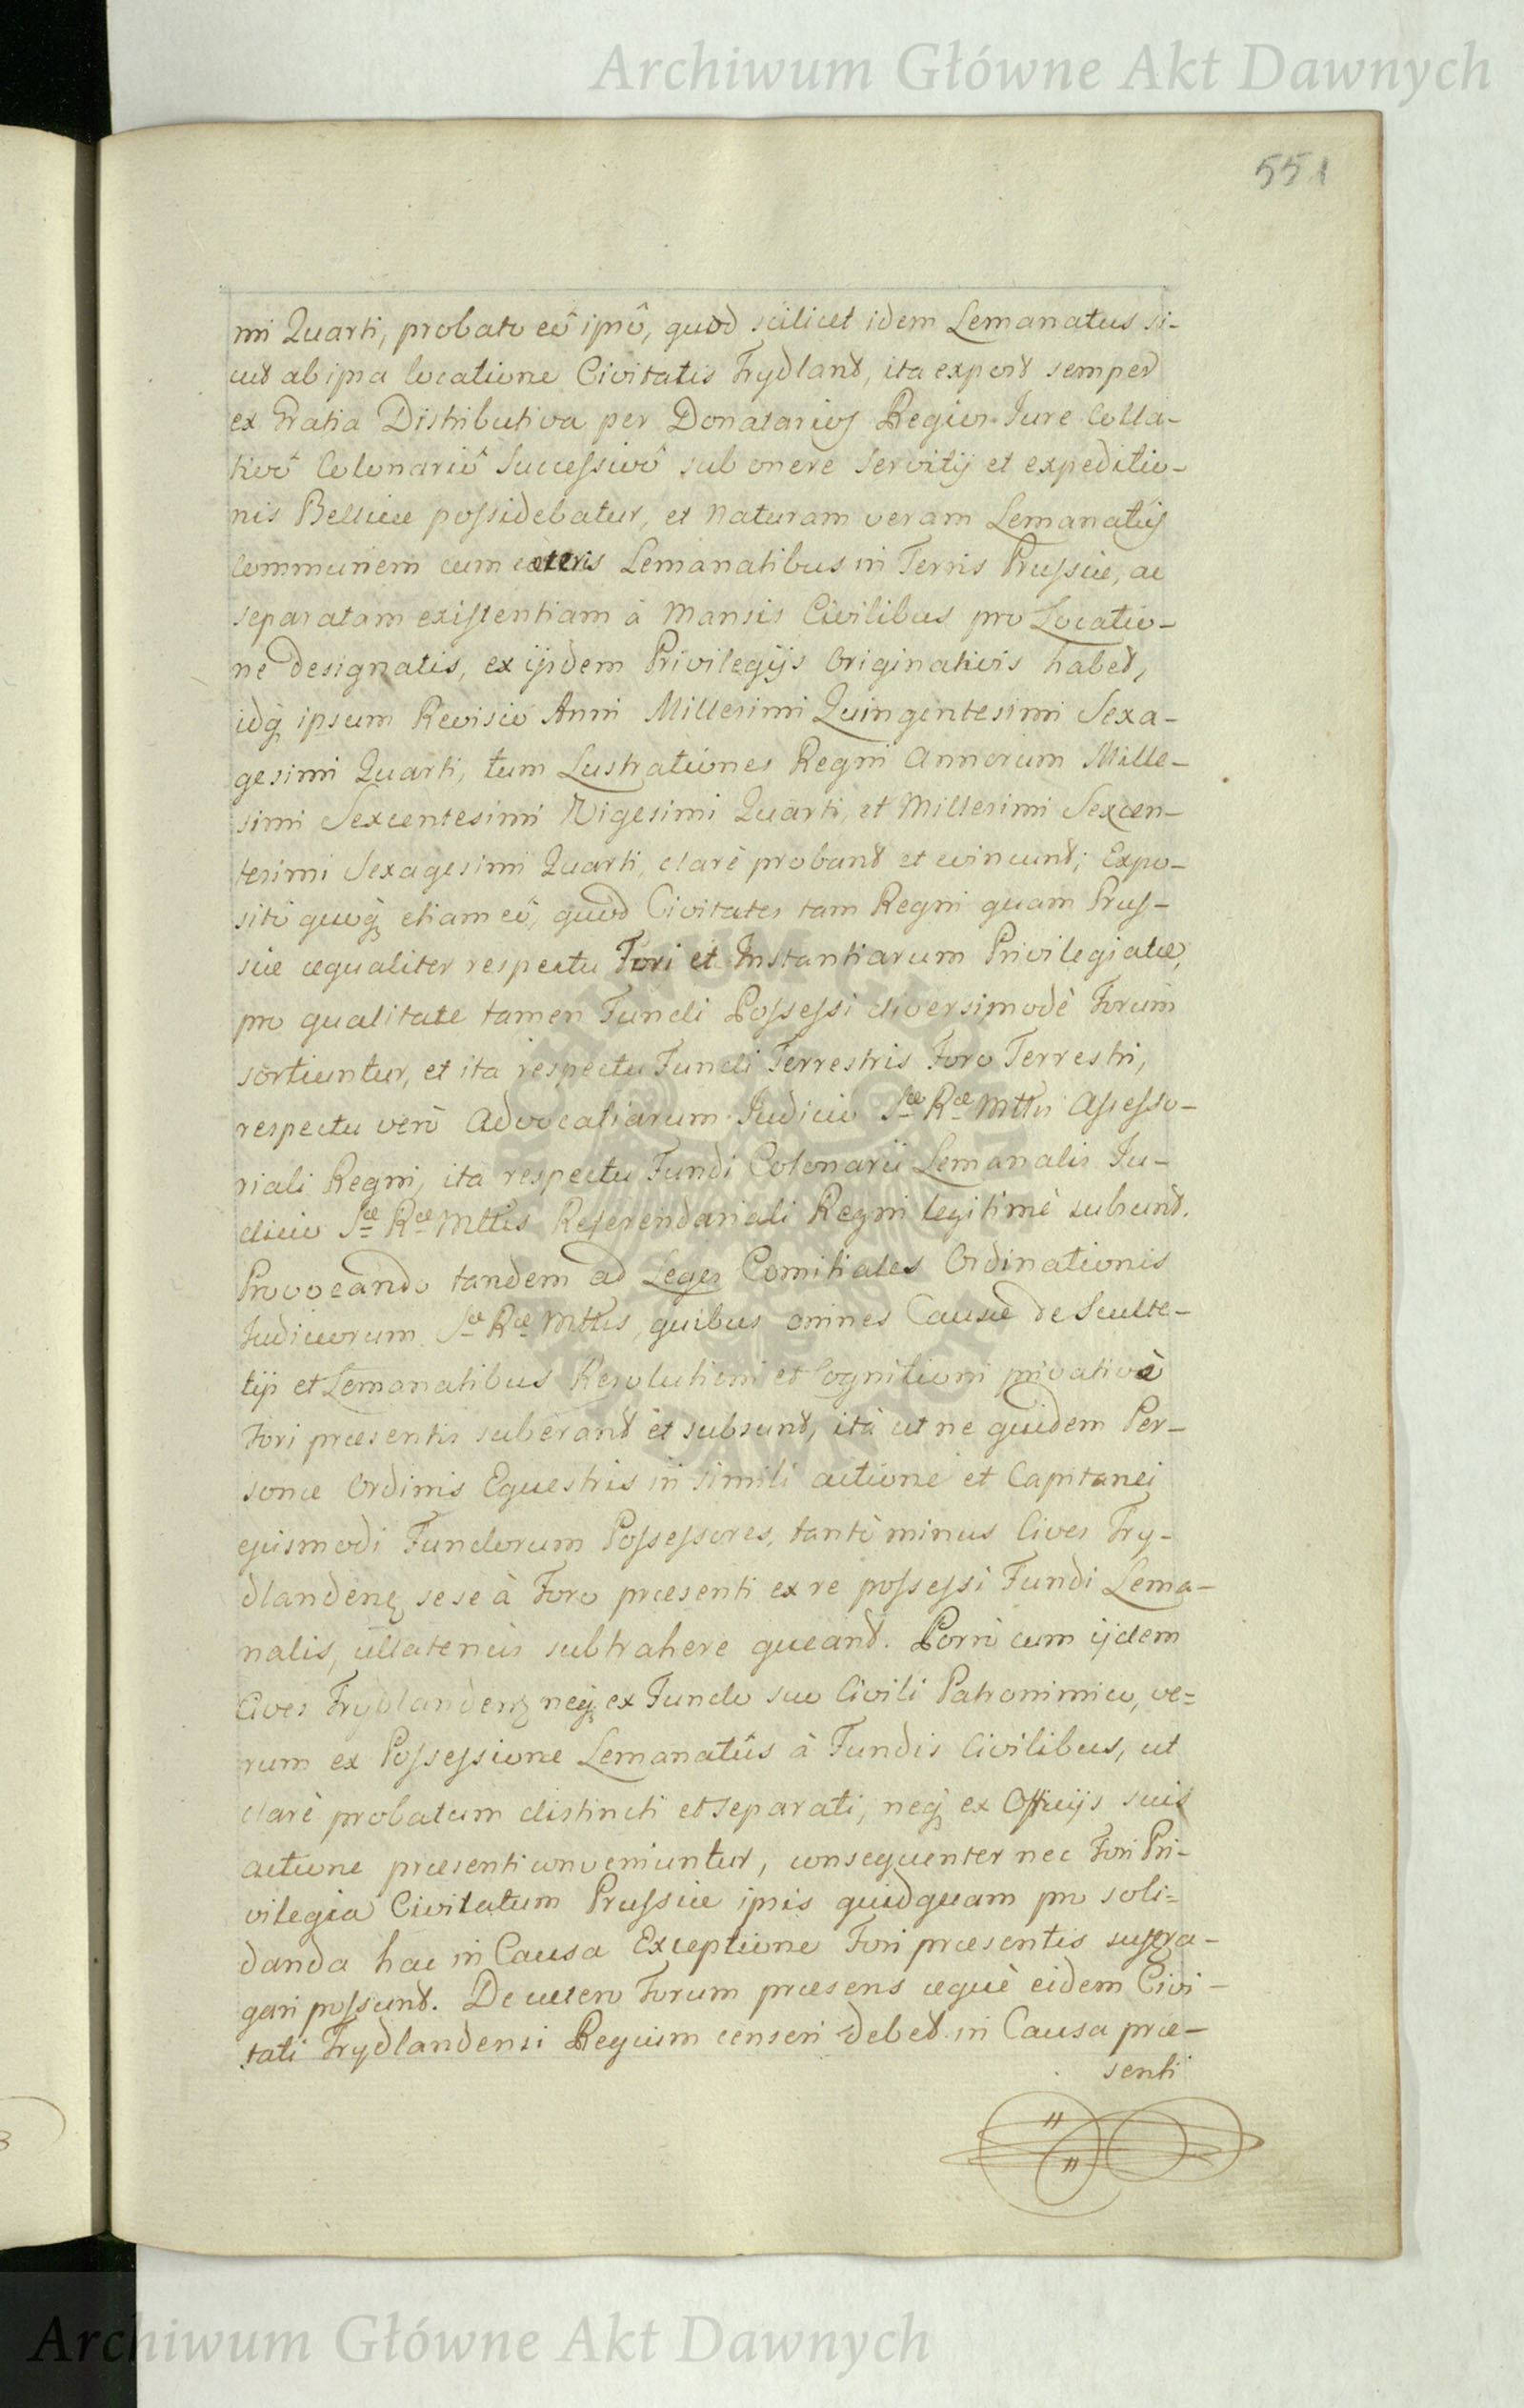 Archiwum Główne Akt Dawnych
551
mi Quarti, probato eô ipsô, quod scilicet idem Lemanatus si-
cut ab ipsa locatione Civitatis Frydland, ita expost semper
ex Gratia Distributiva per Donatarios Regios Jure Colla-
tivô Colonariô Successivô sub onere Servitij et expeditio-
nis Bellicæ possidebatur, et Naturam veram Lemanatûs
Communem cum cæteris Lemanatibus in Terris Prussiæ, ac
separatam existentiam à Mansis Civilibus pro Locatio-
ne designatis, ex ijsdem Privilegijs Originativis habet,
idq ipsum Revisio Anni Millesimi Quingentesimi Sexa-
gesimi Quarti, tum Lustrationes Regni Annorum Mille-
simi Sexcentesimi Vigesimi Quarti, et Millesimi Sexcen-
tesimi Sexagesimi Quarti, clarè probant et evincunt; Expo-
sitô quoq etiam eô, quod Civitates tam Regni quam Prus-
siæ æqualiter respectu Fori et Instantiarum Privilegiatæ,
pro qualitate tamen Fundi Possessi diversimodè Forum
sortiuntur, et ita respectu Fundi Terrestris Foro Terrestri,
respectu verò Advocatiarum Judicio Sæ Ræ Mttis Assesso-
riali Regni, ita respectu Fundi Colonarii Lemanalis Ju-
dicio Sæ Ræ Mttis Referendariali Regni legitimè subsunt.
Provocando tandem ad Leges Comitiales Ordinationis
Judiciorum Sæ Ræ Mttis, quibus omnes Causæ de Sculte-
tijs et Lemanatibus Resolutioni et Cognitioni privativè
Fori præsentis suberant et subsunt, ità ut ne quidem Per-
sonæ Ordinis Equestris in simili actione et Capitanei
ejusmodi Fundorum Possessores, tantò minus Cives Fry-
dlandens sese à Foro præsenti ex re possessi Fundi Lema-
nalis, ullatenus subtrahere queant. Porrò cum ijdem
Cives Frydlandens neq ex Fundo suo Civili Patronimico, ve=
rum ex Possessione Lemanatûs à Fundis Civilibus, ut
clarè probatum distincti et separati, neq ex Officijs suis
actione præsenti conveniuntur, consequenter nec Fori Pri-
vilegia Civitatum Prussiæ ipsis quidquam pro soli=
danda hac in Causa Exceptione Fori præsentis suffra-
gari possunt. De cætero Forum præsens æquè eidem Civi-
tati Frydlandensi Regium censeri debet in Causa præ-
senti
Archiwum Główne Akt Dawnych